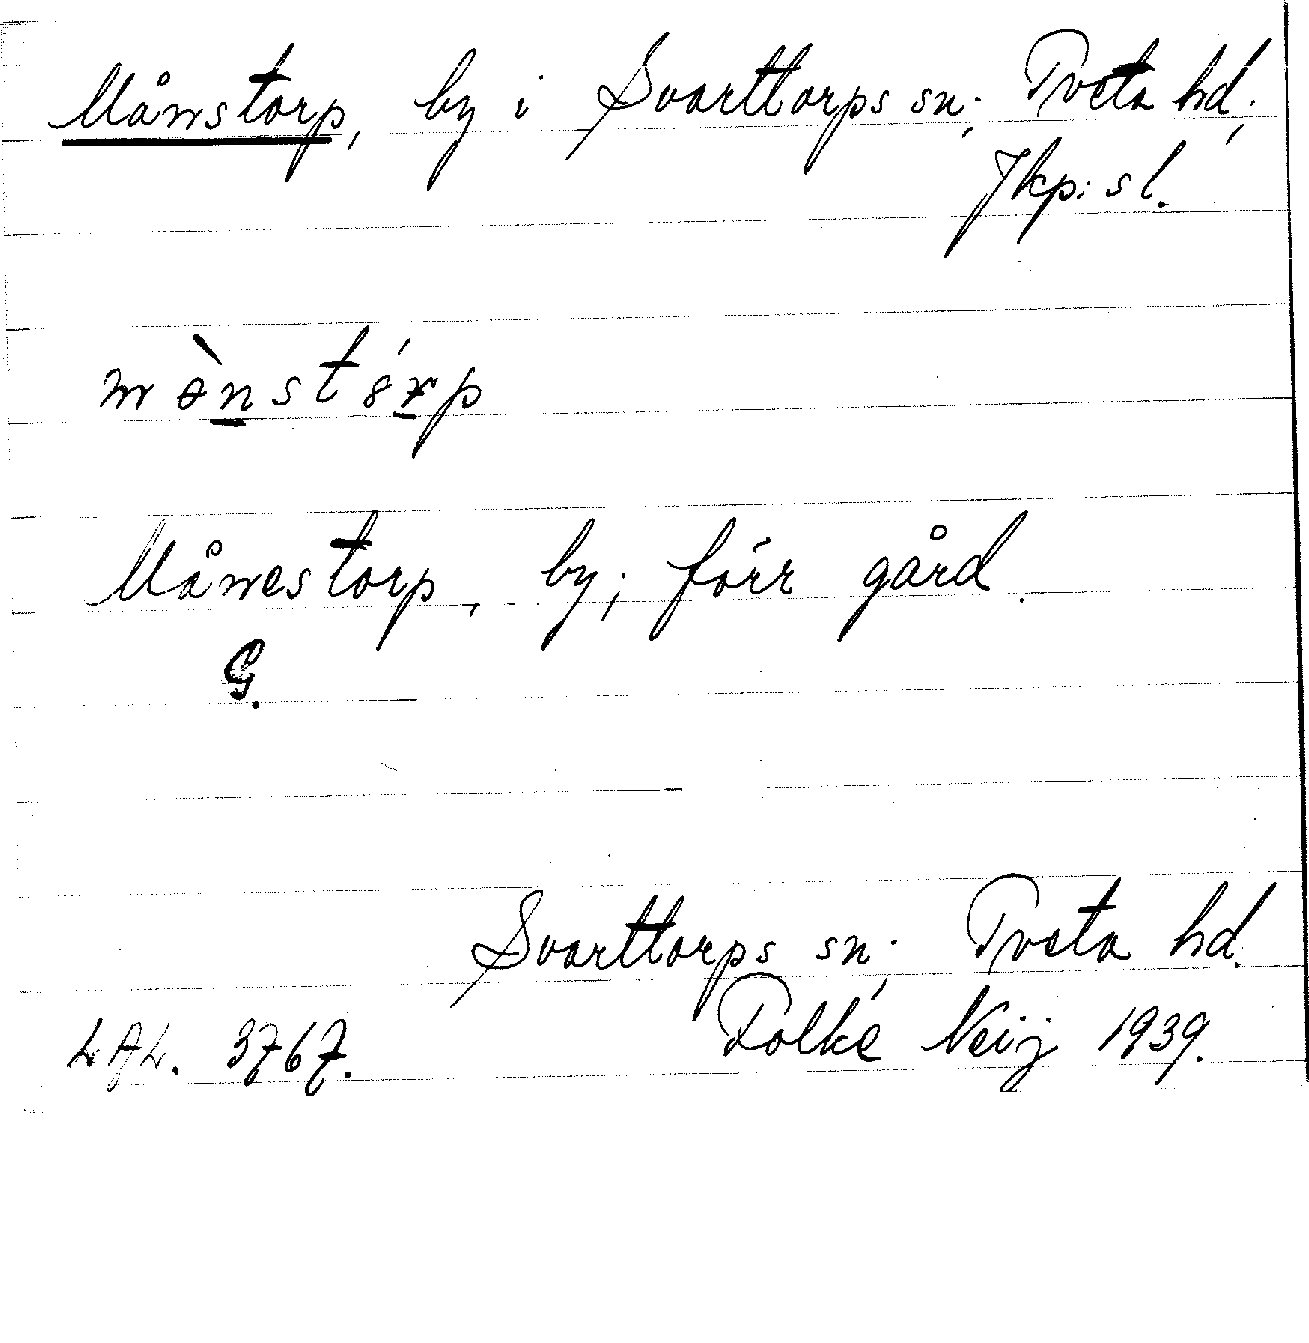 Månstorp, by i Svarttorps sn; Tveta hd;
Jkp: sl.
Månestorp, by; förr gård.
G.
Svarttorps sn; Tveta hd.
LAL. 3767. Folke Neij 1939.